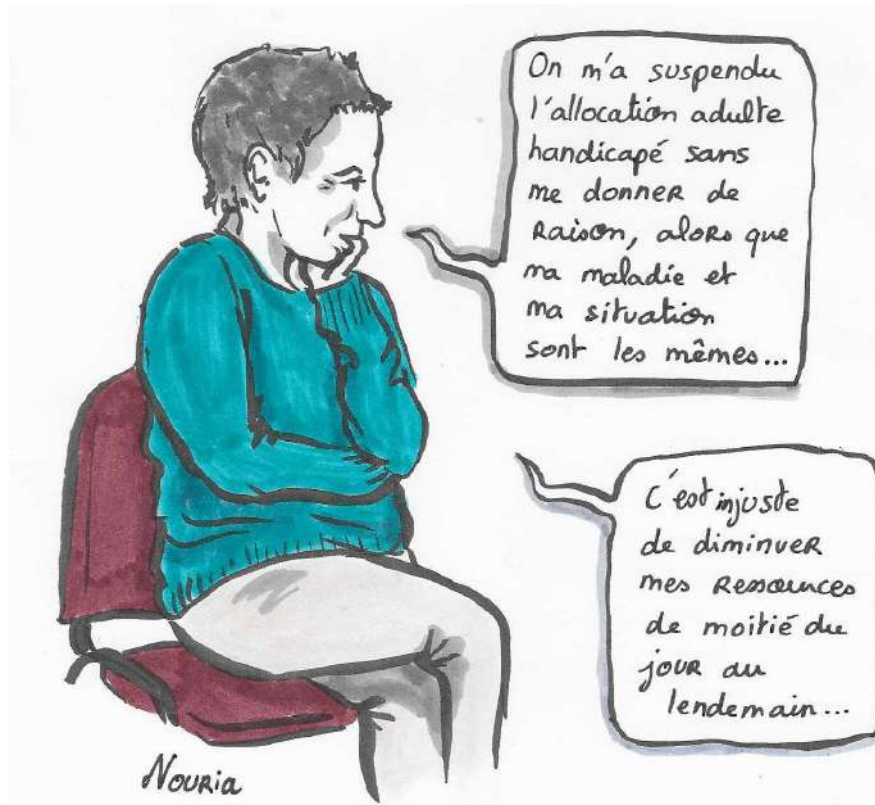 On m'a suspendu
l'allocation adulte
handicapé sans
me donner de
raison, alors que
ma maladie et
ma situation
sont les mêmes...
C'est injuste
de diminuer
mes ressources
de moitié du
jour au
lendemain...
Nouria